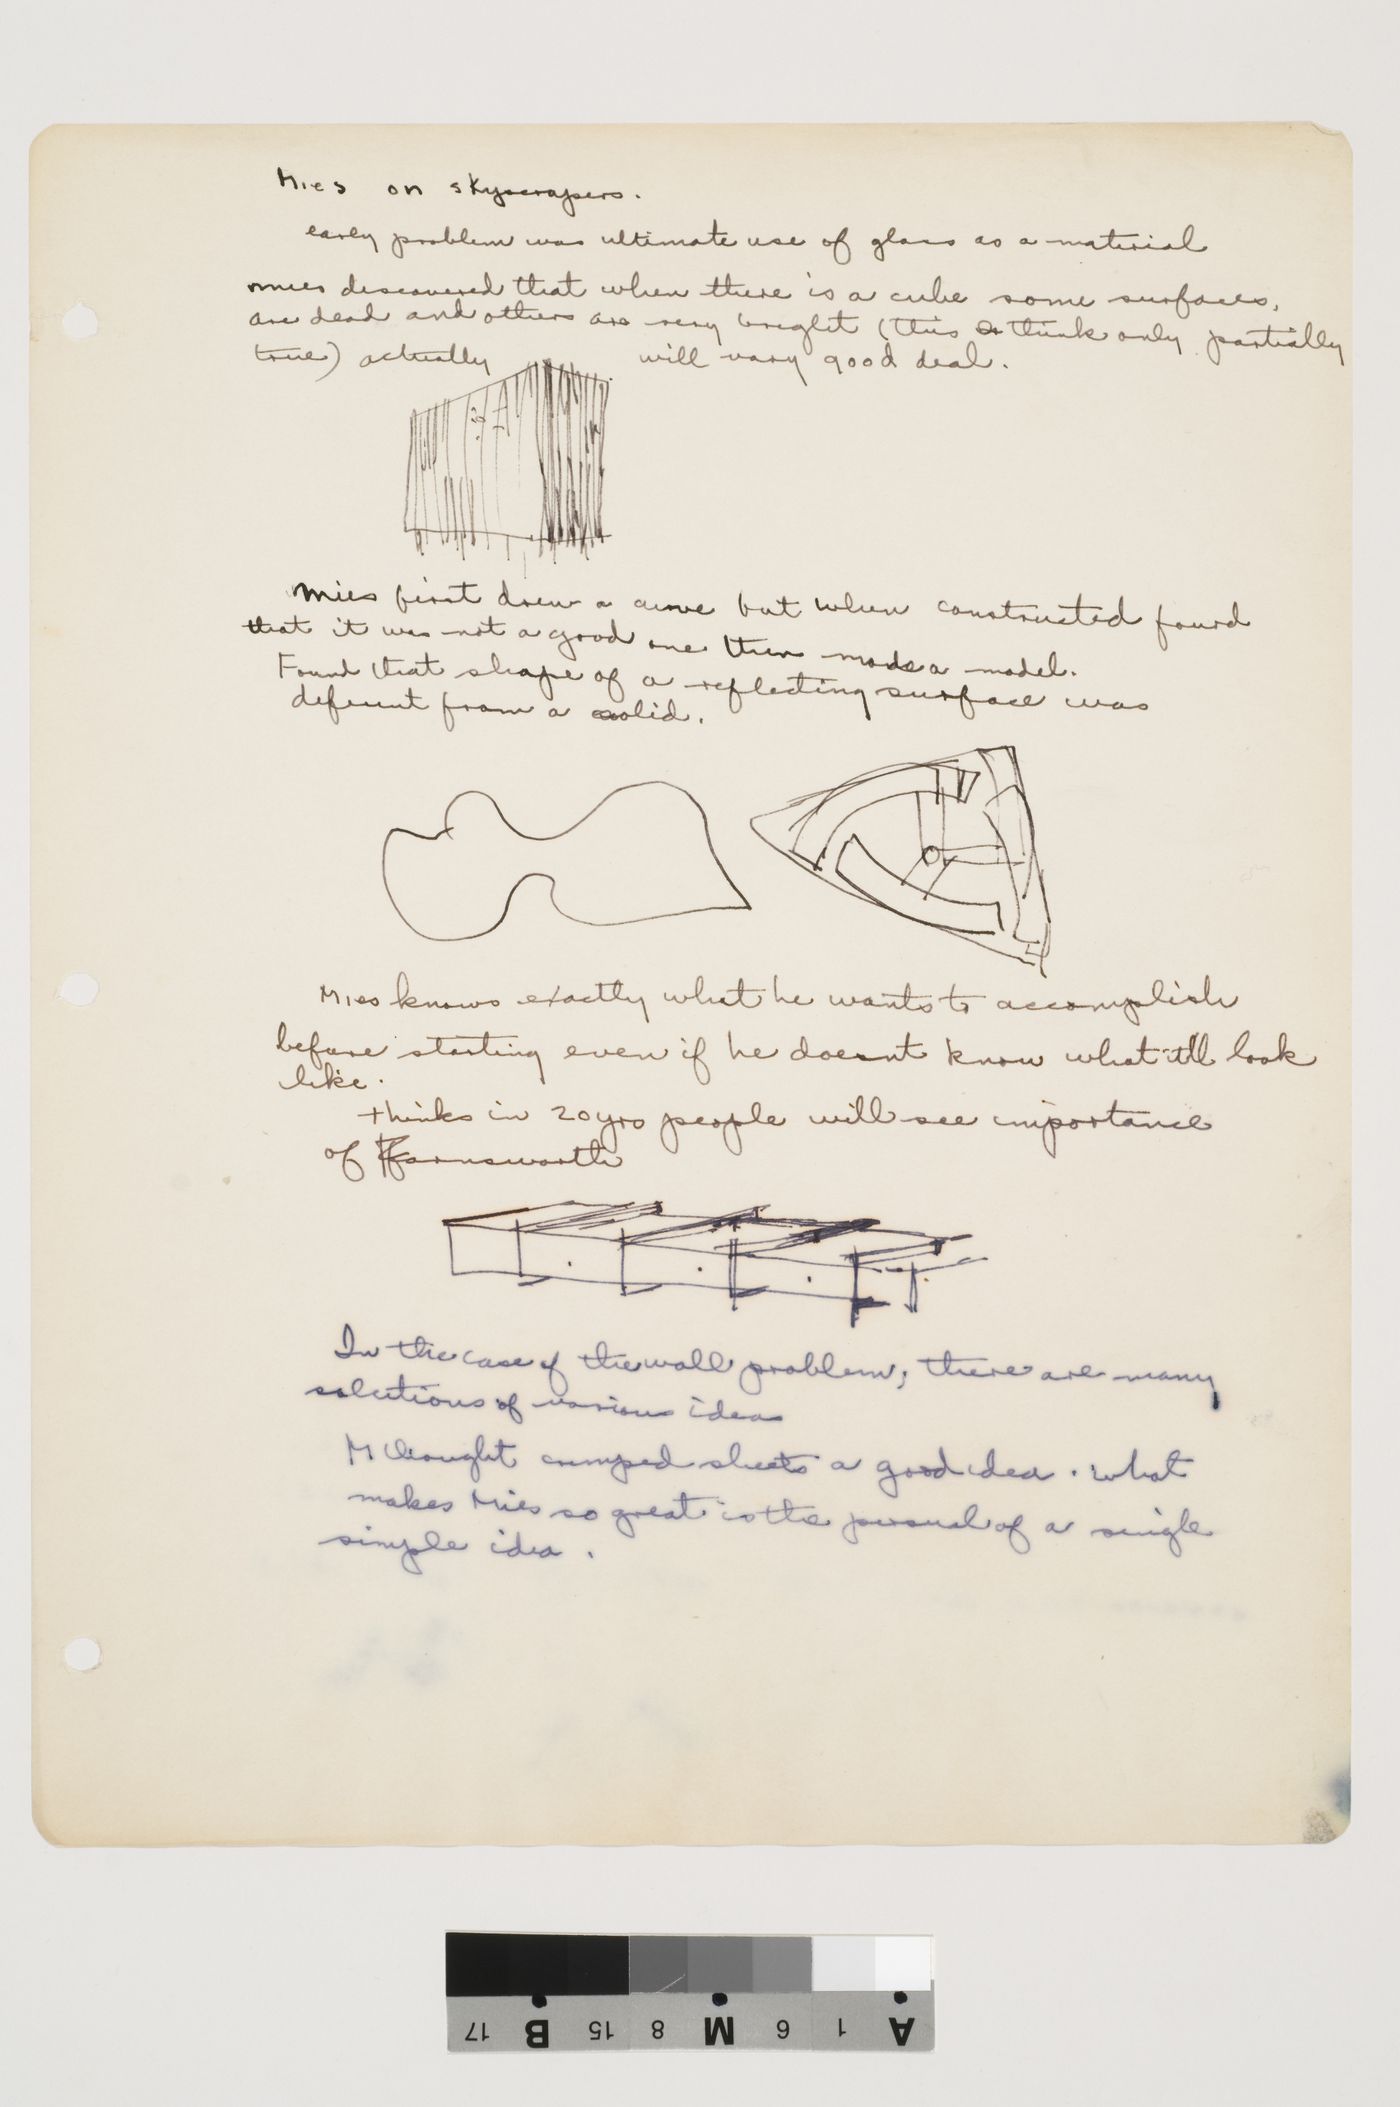 Mies on skyscrapers.
early problem was ultimate use of glass as a material
mies discovered that when there is a cube some surfaces,
are dead and others are very bright (this I think only partially
true) actually will vary good deal.
Mies first drew a curve but when constructed found
that it was not a good one then made a model.
Found that shape of a reflecting surface was
deferent from a solid.
Mies knows exactly what he wants to accomplish
before starting even if he doesnt know what it'll look
like.
thinks in 20 yrs people will see importance
of Farnsworth
In the case of the wall problem, there are many
solutions of various ideas
M thought crimped sheets a good idea. what
makes Mies so great is the persual of a single
simple idea.
17 B 15 8 M 6 1 A